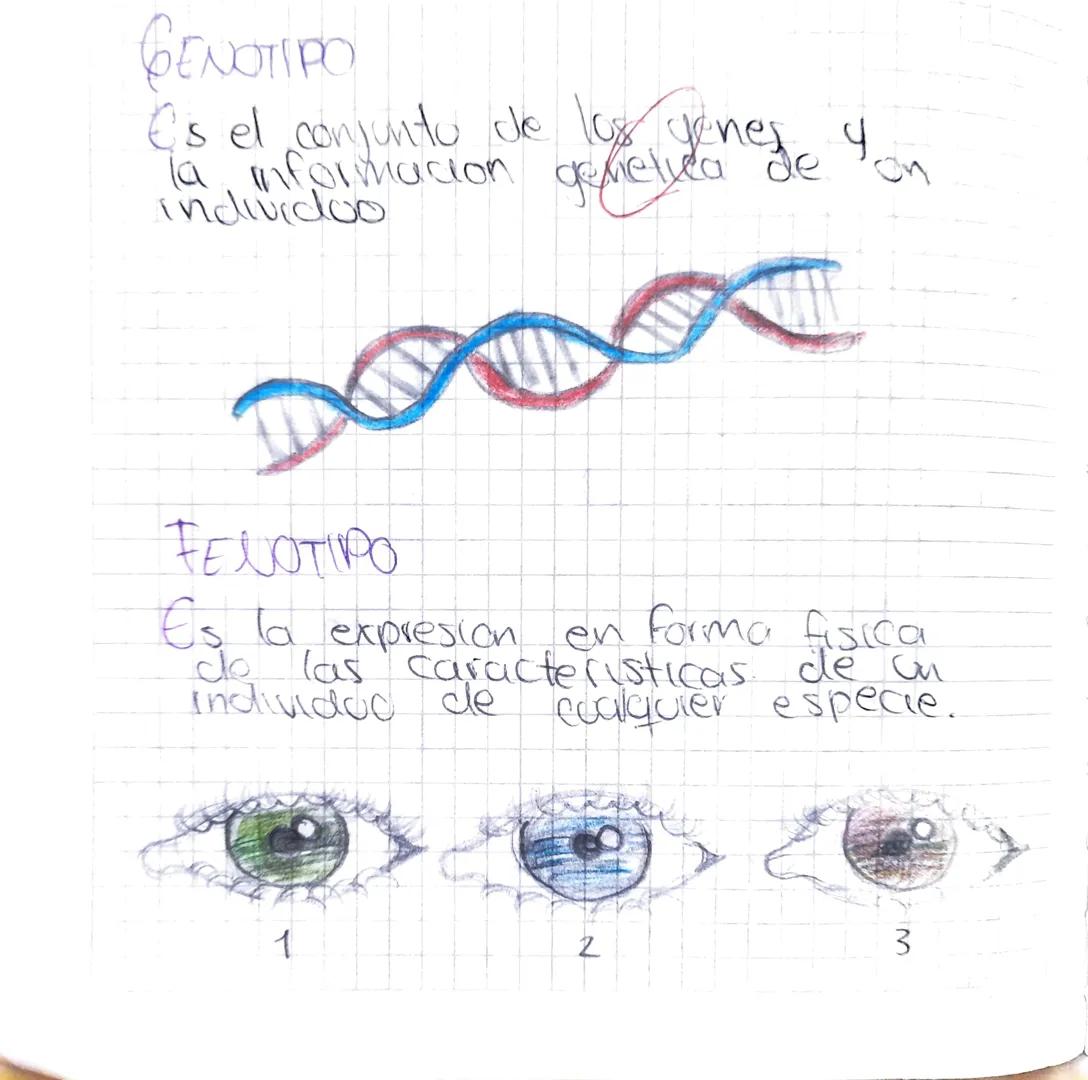 GENOTIPO
Es el conjunto de los genes y
la informacion genetica de un
individuo
FENOTIPO
Es la expresion en forma fisica
de las caracteristicas de un
individuo de cualquier especie.
1 2 3